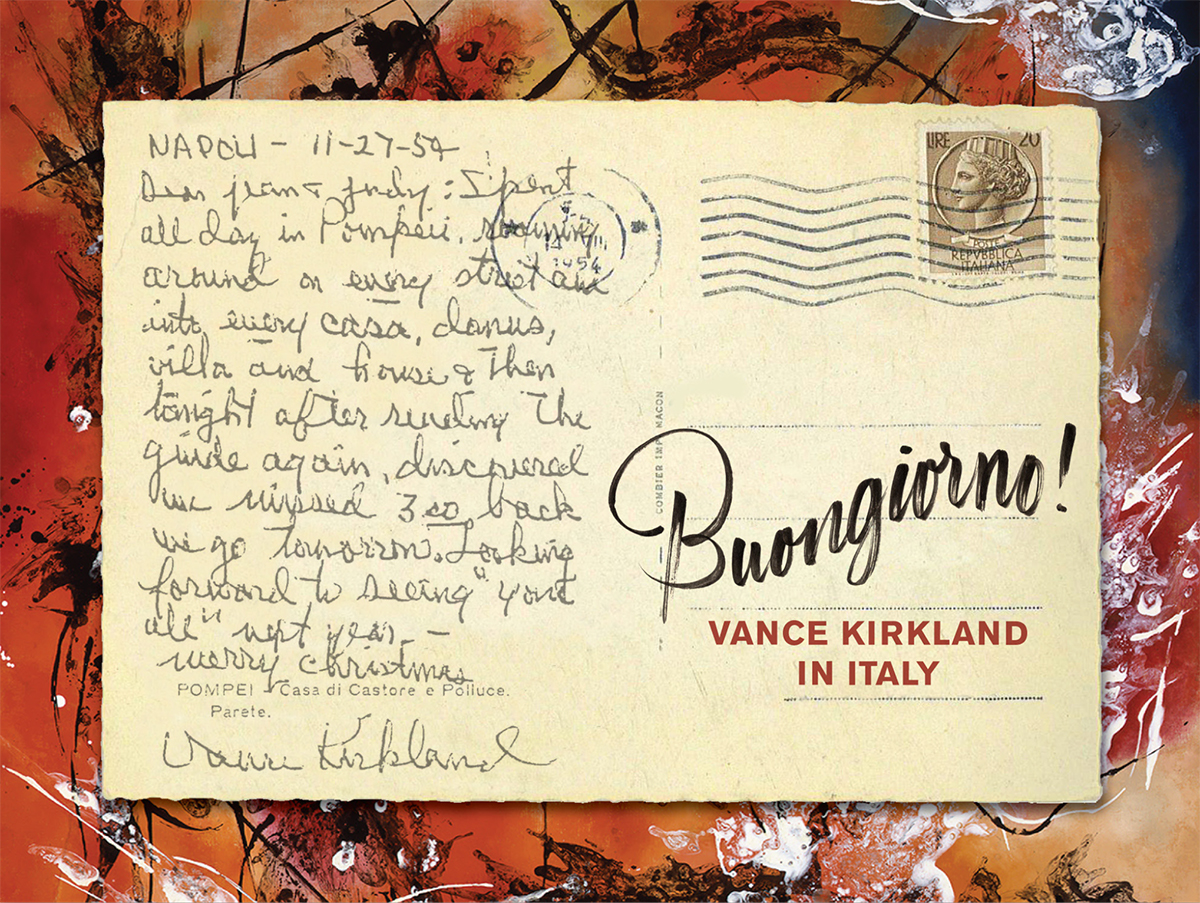 NAPOLI – 11-27-54
Dear Jean & Judy: Spent
all day in Pompeii, roaming
around on every street and
into every casa, domus,
villa and house & then
tonight after reading the
guide again, discovered
we missed 3 so back
we go tomorrow. Looking
forward to seeing "you
all" next year. –
merry christmas
POMPEI - Casa di Castore e Polluce.
Parete.
Vance Kirkland
1954
COMBIER IMP. MACON
LIRE 20
POSTE
REPVBBLICA
ITALIANA
Buongiorno!
VANCE KIRKLAND
IN ITALY